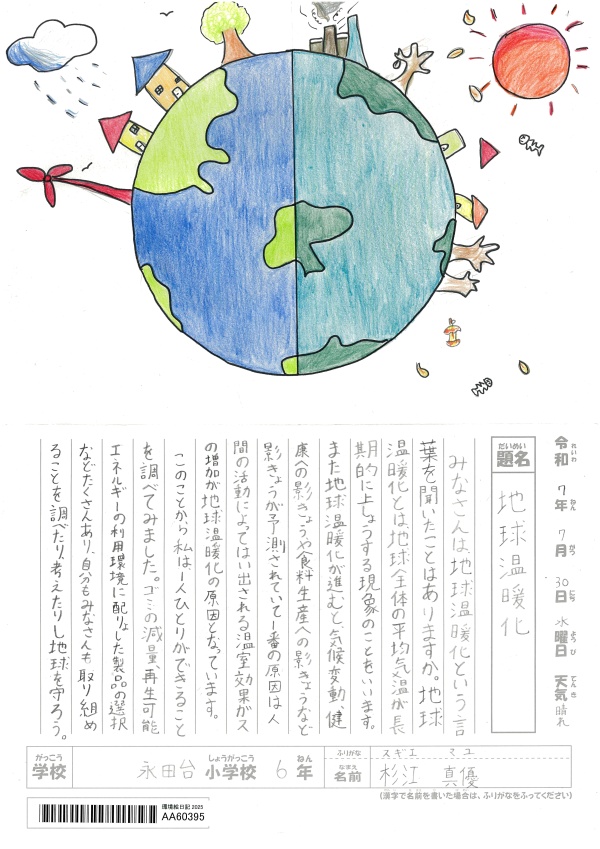 令和7年7月30日水曜日 天気晴れ
れいわ ねん がつ にち ようび てんき
だいめい
題名 地球温暖化
みなさんは地球温暖化という言
葉を聞いたことはありますか。地球
温暖化とは、地球全体の平均気温が長
期的に上しょうする現象のことをいいます。
また地球温暖化が進むと、気候変動、健
康への影きょうや食料生産への影きょうなど
影きょうが予測されていて1番の原因は人
間の活動によってはい出される温室効果ガス
の増加が地球温暖化の原因となっています。
このことから私は、1人ひとりができること
を調べてみました。ゴミの減量、再生可能
エネルギーの利用環境に配りょした製品の選択
などたくさんあり、自分もみなさんも取り組め
ることを調べたり、考えたりし地球を守ろう。
がっこう しょうがっこう ねん
学校 永田台小学校 6年
ふりがな スギエ マユ
なまえ
名前 杉江 真優
(漢字で名前を書いた場合は、ふりがなをふってください)
環境絵日記2025
AA60395